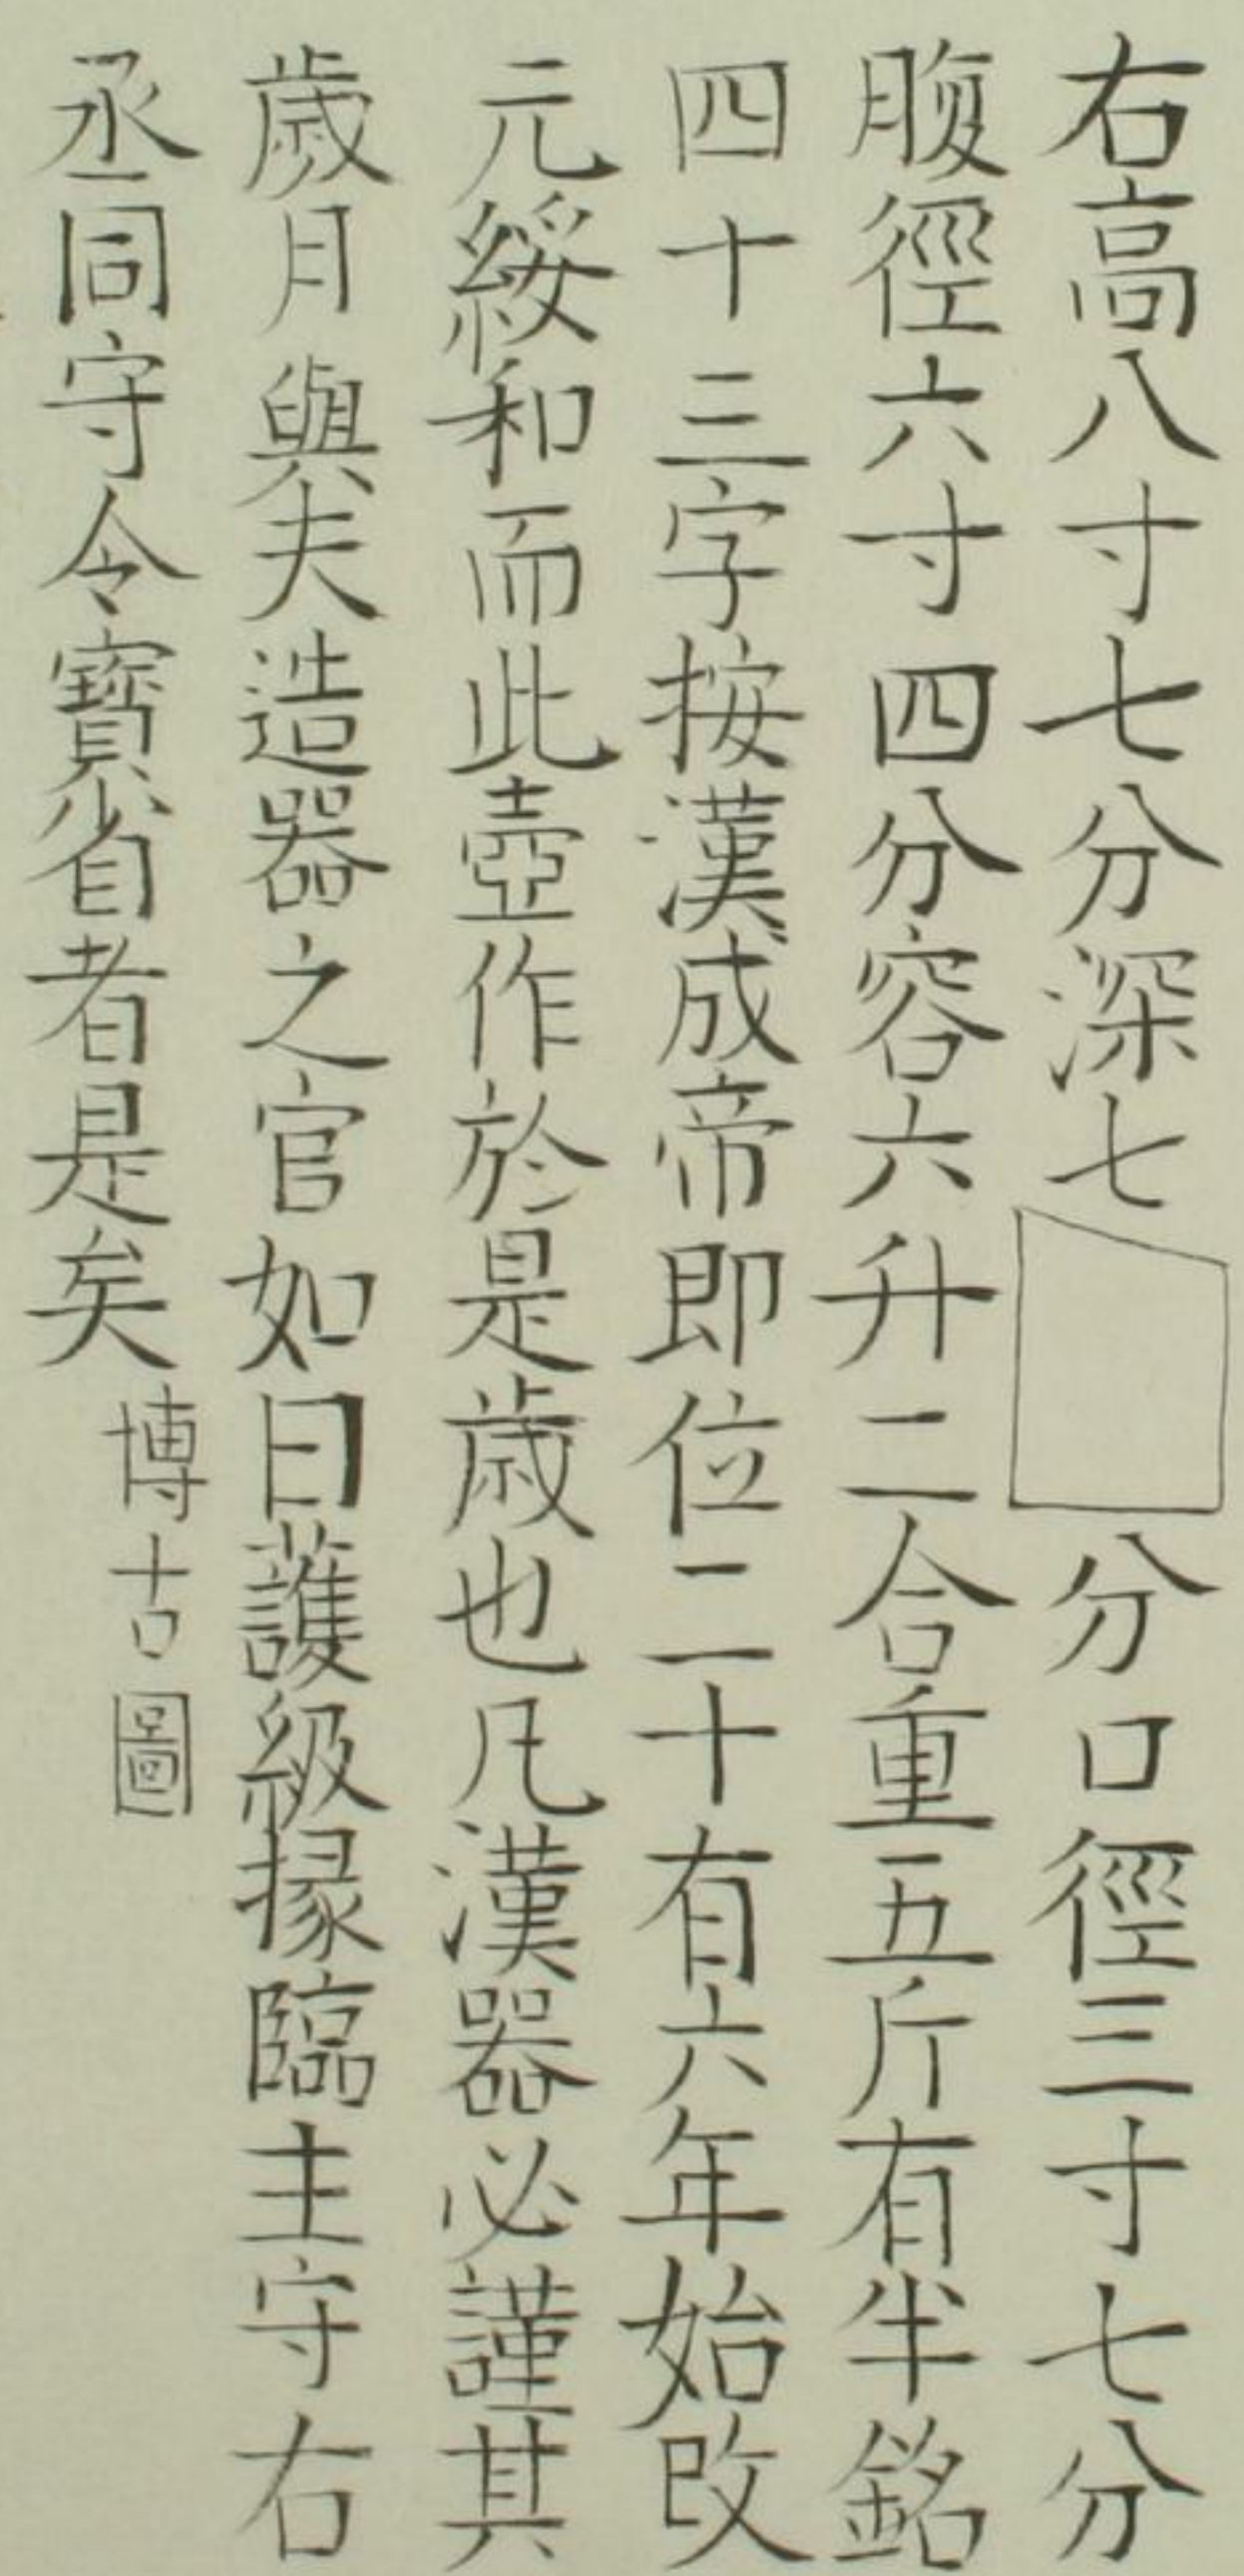 右高八寸七分深七分口徑三寸七分
腹徑六寸四分容六升二合重五斤有半銘
四十三字按漢成帝即位二十有六年始改
元綏和而此壺作於是歲也凡漢器必謹其
歲月與夫造器之官如曰護級掾臨主守右
丞同守令寶省者是矣
博古圖